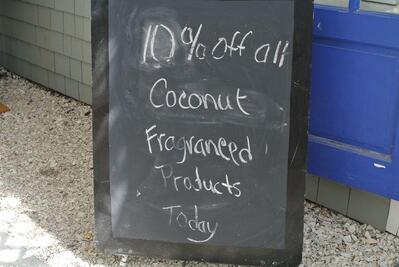 10% off all
Coconut
Fragranced
Products
Today